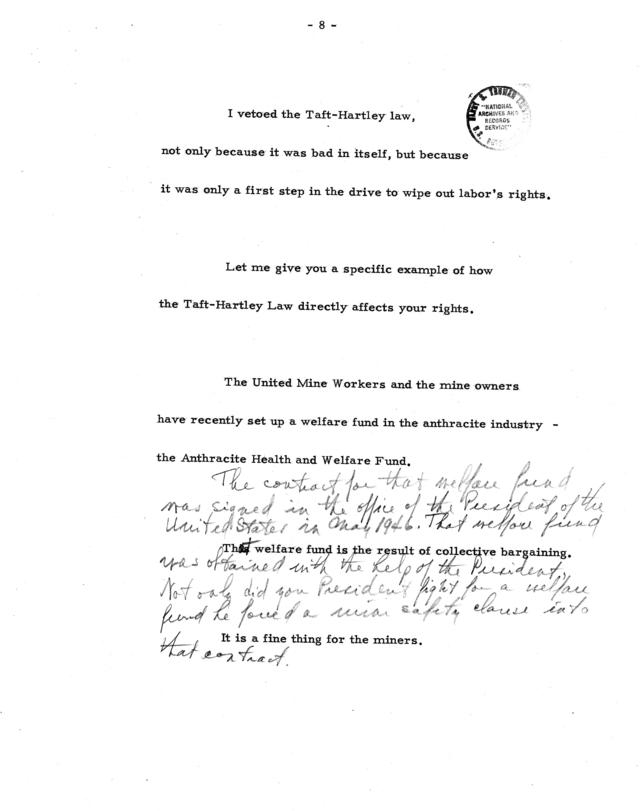 - 8 -
I vetoed the Taft-Hartley law,
HARRY S. TRUMAN
"NATIONAL
ARCHIVES AND
RECORDS
SERVICE"
not only because it was bad in itself, but because
it was only a first step in the drive to wipe out labor's rights.
Let me give you a specific example of how
the Taft-Hartley Law directly affects your rights.
The United Mine Workers and the mine owners
have recently set up a welfare fund in the anthracite industry -
the Anthracite Health and Welfare Fund.
The contract for that welfare fund
was signed in the office of the President of the
United States in May 1946. That welfare fund
That welfare fund is the result of collective bargaining.
was obtained with the help of the President.
Not only did your President fight for a welfare
fund he forced a mine safety clause into
It is a fine thing for the miners.
that contract.